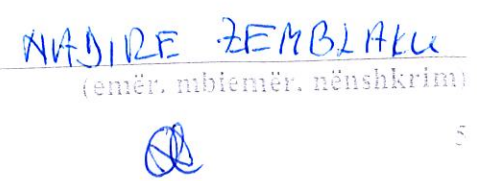 NADIRE ZEMBLAKU
(emër, mbiemër, nënshkrim)
5